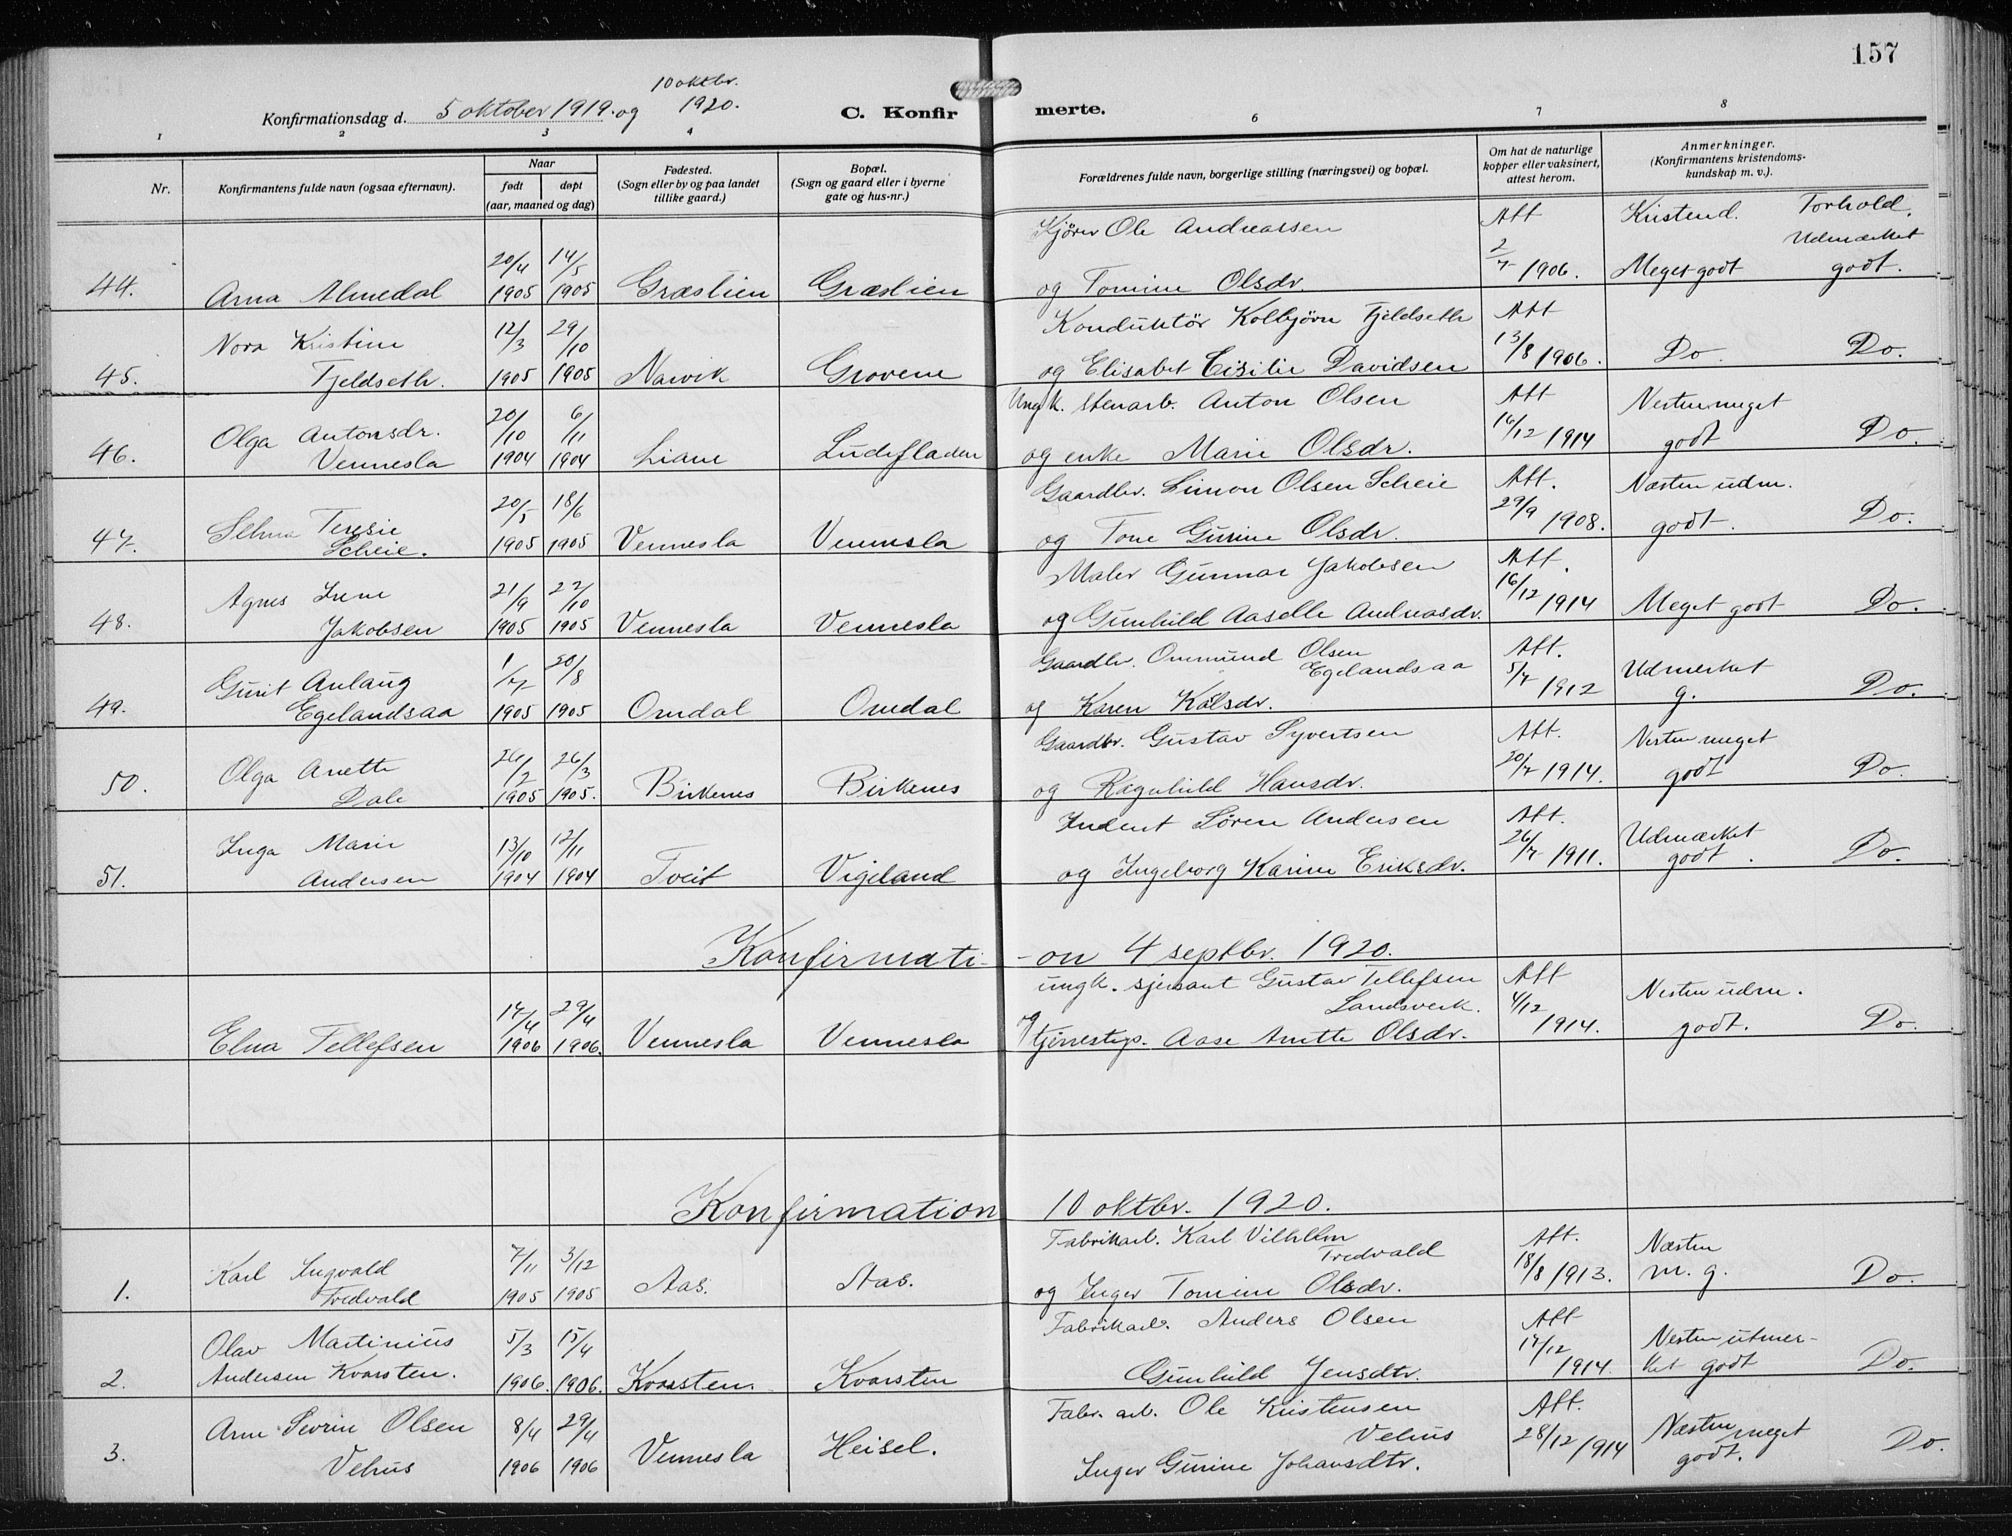 157
10 oktbr.
Konfirmationsdag d. 5 oktober 1919. og 1920. C. Konfirmerte.
1 2 3 4 6 7 8
Nr. Konfirmantens fulde navn (ogsaa efternavn). Naar født døpt (aar, maaned og dag) Fødested. (Sogn eller by og paa landet tillike gaard.) Bopæl. (Sogn og gaard eller i byerne gate og hus-nr.) Forældrenes fulde navn, borgerlige stilling (næringsvei) og bopæl. Om hat de naturlige kopper eller vaksinert, attest herom. Anmerkninger. (Konfirmantens kristendomskundskap m. v.).
Kjører Ole Andreassen Att Kristend. Forhold.
20/4 14/5 2/7 1906. Udmærket
44. Arna Almedal 1905 1905 Græslien Græslien og Tomine Olsdr. Meget godt godt.
Nora Kristine 12/3 29/10 Konduktör Kolbjørn Fjeldseth Att
45. Fjeldseth. 1905 1905 Narvik Grovene og Elisabet Cisilie Davidsen 13/8 1906. Do. Do.
Olga Antonsdr. 20/10 6/11 Ungk. stenarb. Anton Olsen Att Nesten meget
46. Vennesla 1904 1904 Liane Ludefladen og enke Marie Olsdr. 16/12 1914 godt Do.
Selma Teresie 20/5 18/6 Gaardbr. Simon Olsen Scheie Att. Næsten udm.
47. Scheie. 1905 1905 Vennesla Vennesla og Tone Gurine Olsdr. 29/9 1908. godt. Do.
Agnes Irene 21/9 22/10 Maler Gunnar Jakobsen Att.
48. Jakobsen 1905 1905 Vennesla Vennesla og Gunhild Aaselle Andreasdr. 16/12 1914 Meget godt Do.
Gurit Anlaug 1/7 20/8 Gaardbr. Ommund Olsen Egelandsaa Att. Udmerket
49. Egelandsaa 1905 1905 Omdal Omdal og Karen Kålsdr. 5/7 1912 g. Do.
Olga Anette 26/2 26/3 Gaardbr. Gustav Syvertsen Att. Nesten meget
50. Dale 1905 1905. Birkenes Birkenes og Ragnhild Hansdr. 20/7 1914. godt Do.
Inga Marie 13/10 12/11 Indent Sören Andersen Att. Udmærket
51. Andersen 1904 1904 Tveit Vigeland og Ingeborg Karine Eriksdr. 26/7 1911. godt. Do.
Konfirmati- -on 4 septbr. 1920.
17/4 29/4 ungk. sjersant Gustav Tellefsen Landsverk. Att Nesten udm.
Elna Tellefsen 1906 1906. Vennesla Vennesla tjenestep. Aase Anette Olsdr. 4/12 1914. godt. Do.
Konfirmation 10 oktbr. 1920.
Karl Ingvald 7/11 3/12 Fabrikarb. Karl Vilhelm Tredvald Att. Næsten
1. Tredvald 1905 1905 Aas. Aas. og Inger Tomine Olsdr. 18/8 1913. m. g. Do.
Olav Martinius 5/3 15/4 Fabrikarb. Anders Olsen Att Nesten utmer-
2. Andersen Kvarsten. 1906. 1906. Kvarsten. Kvarsten Gunhild Jensdtr. 17/12 1914. ket godt Do.
Arne Sevrin Olsen 8/4 29/4 Fabr. arb. Ole Kristensen Vehus Att. Næsten meget
3. Vehus 1906 1906 Vennesla Heisel. Inger Gurine Johansdtr. 28/12 1914 godt. Do.